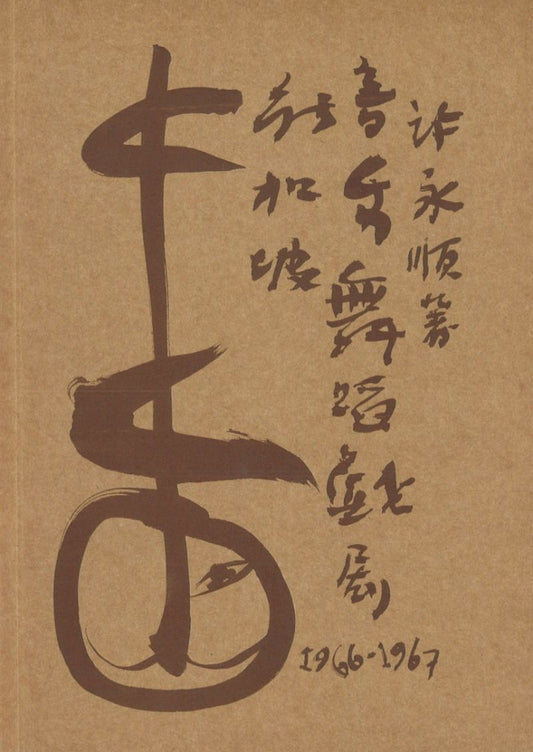 新加坡
音乐舞蹈戲剧
许永順著
1966-1967